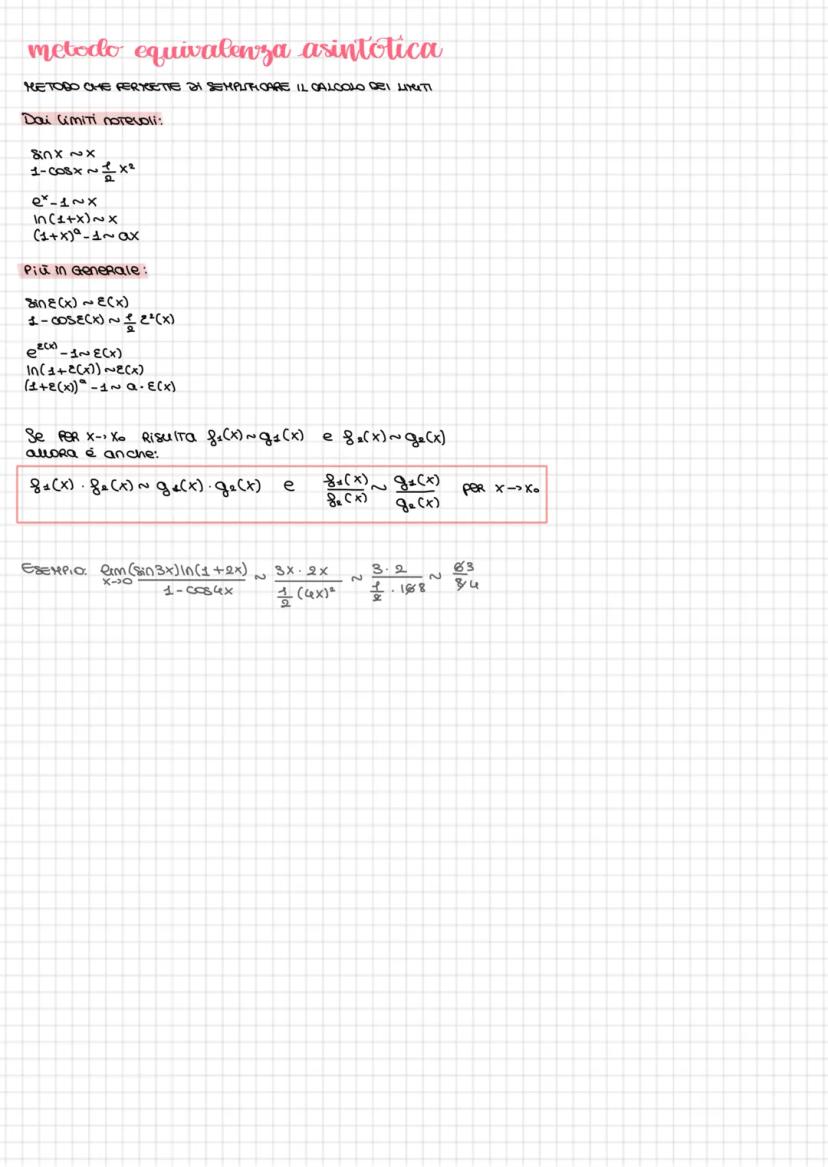 metodo equivalenza asintotica
METODO CHE PERMETTE DI SEMPLIFICARE IL CALCOLO DEI LIMITI
Dai limiti notevoli:
sinx ~ x
1-cosx ~ 1/2 x²
eˣ-1~x
ln(1+x)~x
(1+x)ᵃ-1~ax
Più in generale:
sinε(x) ~ ε(x)
1-cosε(x) ~ 1/2 ε²(x)
e^ε(x) -1~ε(x)
ln(1+ε(x))~ε(x)
(1+ε(x))ᵃ-1~ a·ε(x)
Se PER x→x₀ RISULTA f₁(x)~g₁(x) e f₂(x)~g₂(x)
allORA é anche:
f₁(x)·f₂(x) ~ g₁(x)·g₂(x) e f₁(x)/f₂(x) ~ g₁(x)/g₂(x) PER x→x₀
ESEMPIO: lim x→0 (sin3x)ln(1+2x)/1-cos4x ~ 3x·2x/1/2(4x)² ~ 3·2/1/2·168 ~ 63/84